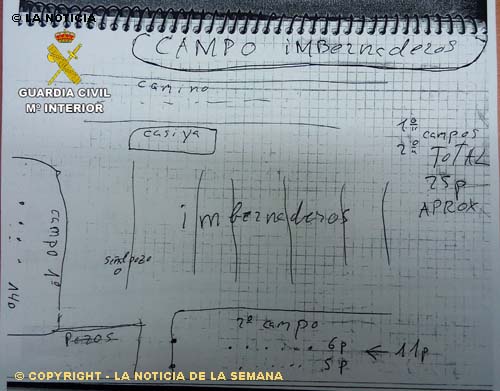 © LA NOTICIA
CAMPO imBernaderos
GUARDIA CIVIL
Mº INTERIOR
camino
casiya
1º
campos
2º
TOTAL
25p
APROX.
imbernaderos
campo 1º
140
2º campo
6p
5p
← 11p
© COPYRIGHT - LA NOTICIA DE LA SEMANA